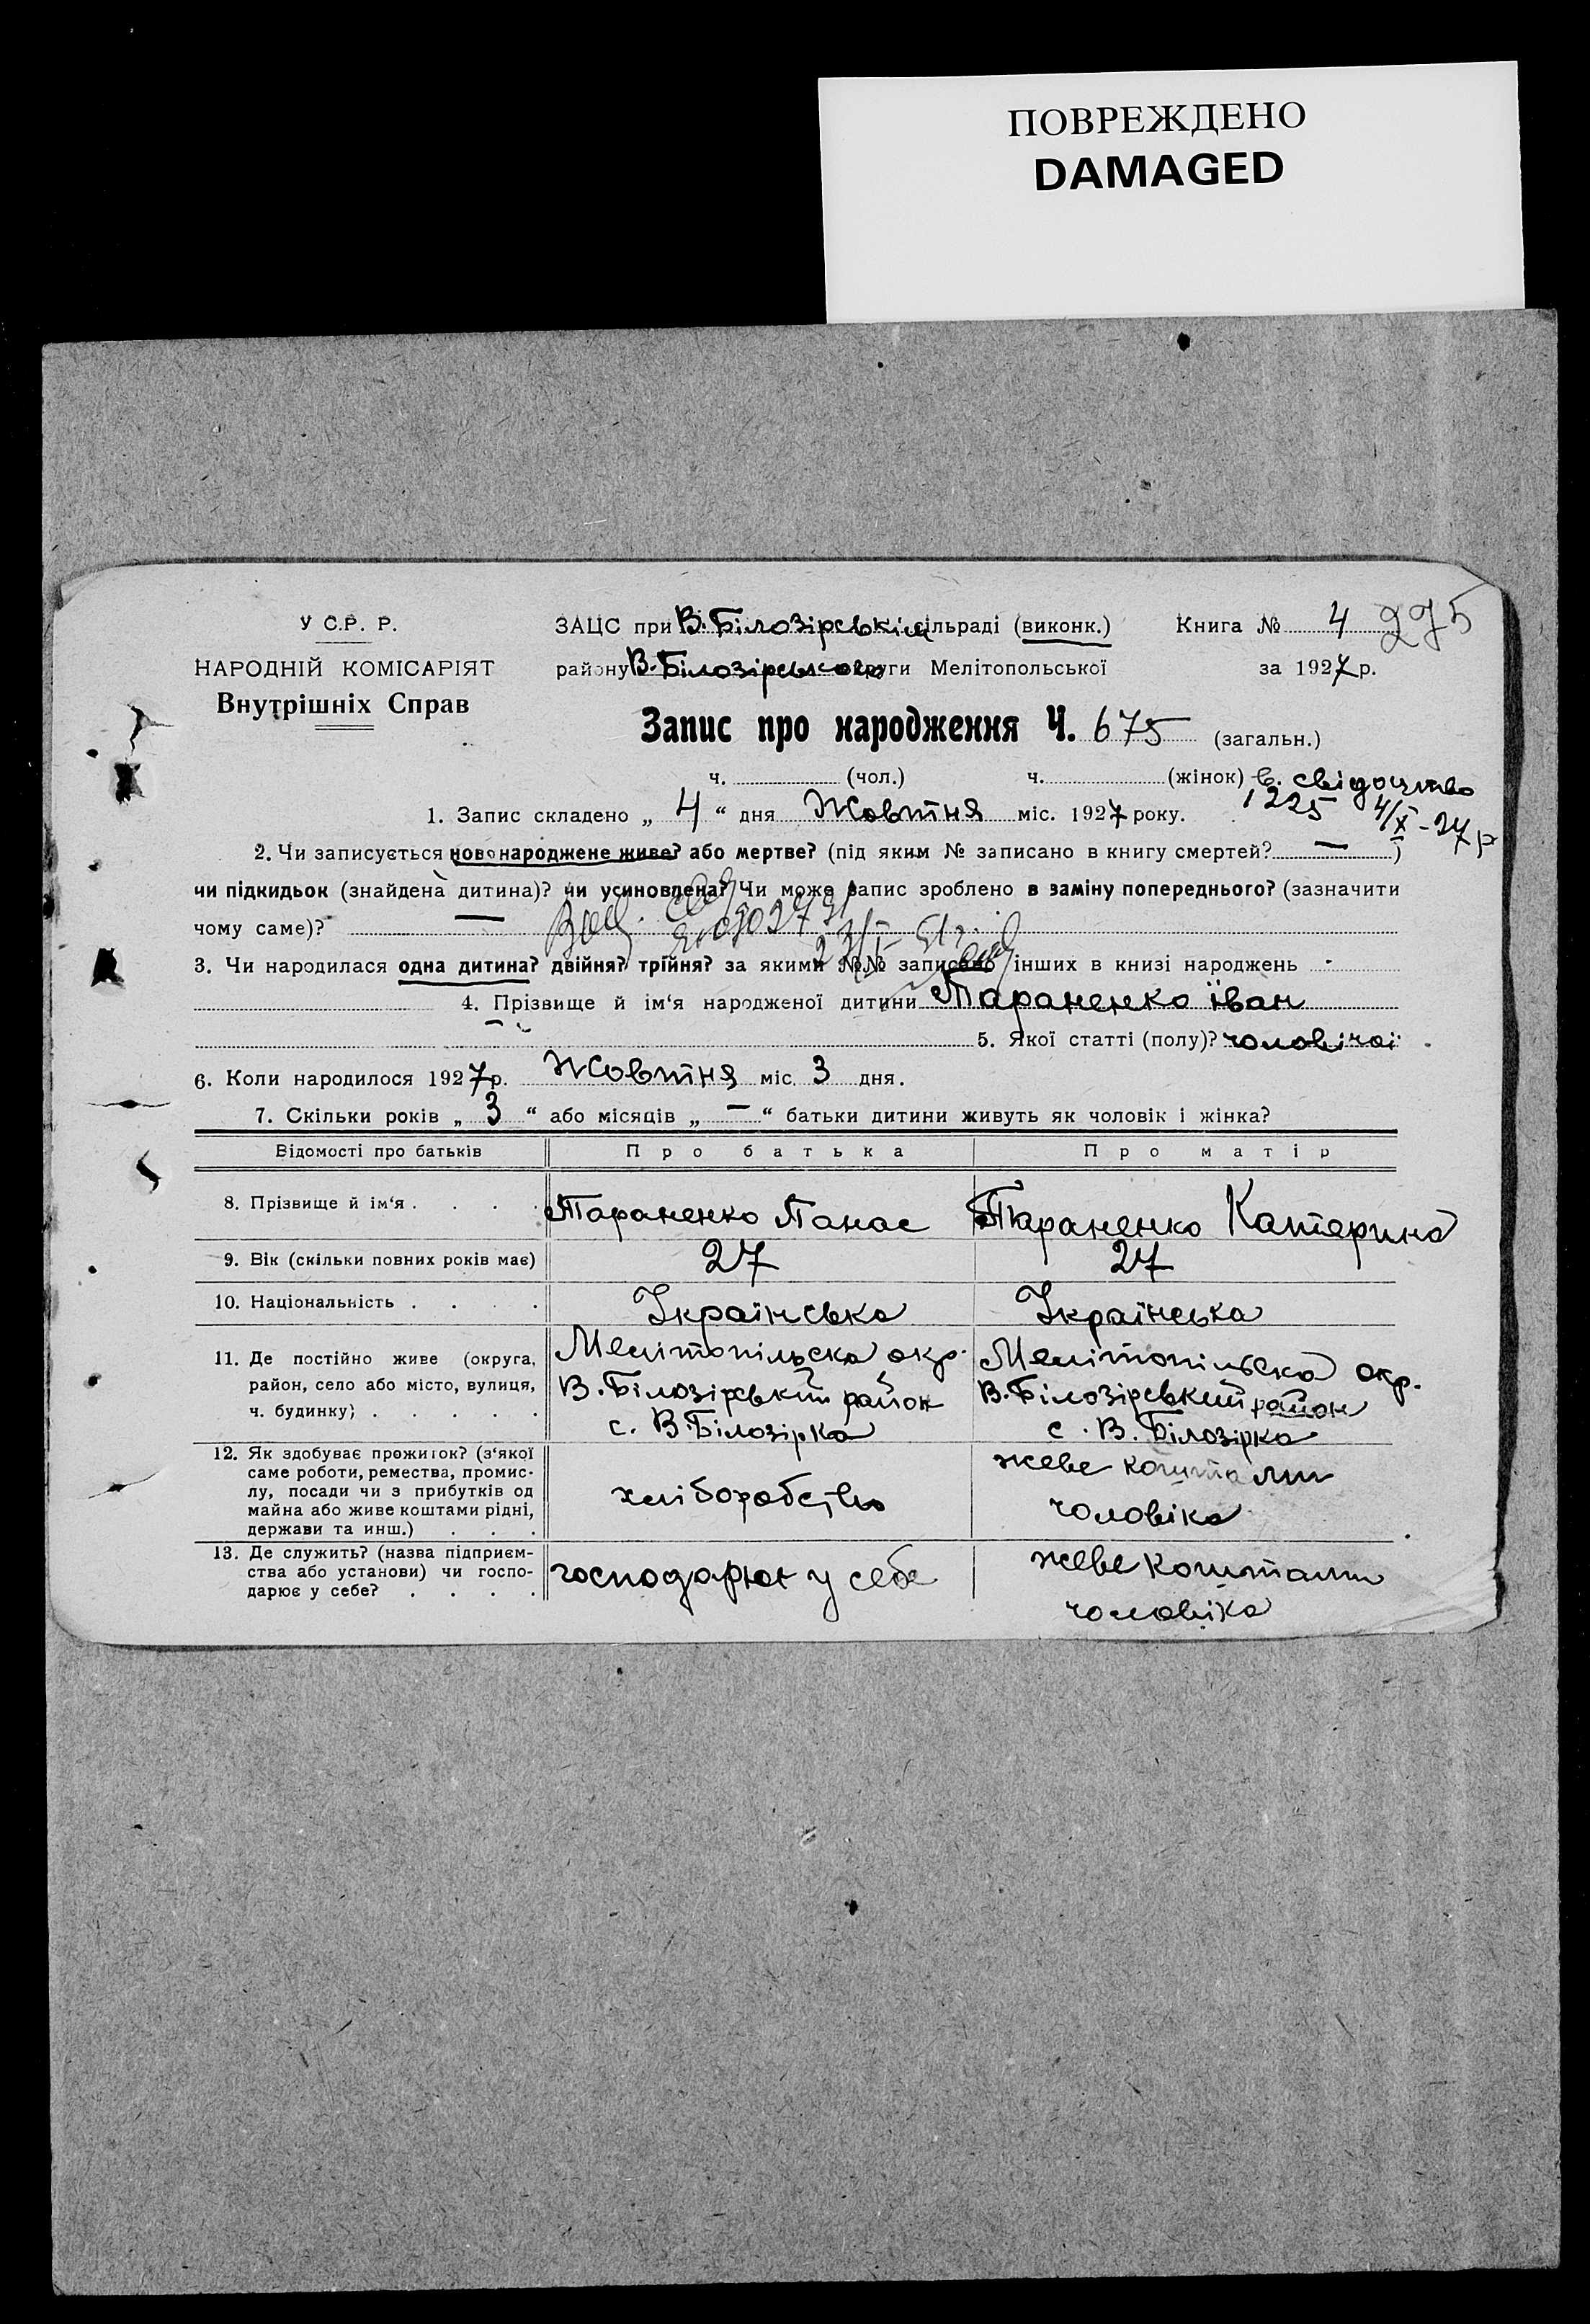 ПОВРЕЖДЕНО
DAMAGED
У С.Р. Р.
НАРОДНІЙ КОМІСАРІЯТ
Внутрішніх Справ
ЗАЦС при В. Білозірськім сільраді (виконк.)
району В. Білозірського округи Мелітопольської
Книга № 4 275
за 1927 р.
Запис про народження Ч. 675 (загальн.)
ч. (чол.) ч. (жінок) в. свідоцтво
1225 4/X - 27 р
1. Запис складено „ 4 “ дня Жовтня міс. 1927 року.
2. Чи записується новонароджене живе? або мертве? (під яким № записано в книгу смертей? — )
чи підкидьок (знайдена дитина)? чи усиновлена? Чи може запис зроблено в заміну попереднього? (зазначити
чому саме)? —
3. Чи народилася одна дитина? двійня? трійня? за якими №№ записано інших в книзі народжень -
4. Прізвище й ім‘я народженої дитини Тараненко Іван
5. Якої статті (полу)? чоловічої
6. Коли народилося 1927 р. Жовтня міс. 3 дня.
7. Скільки років „ 3 “ або місяців „ — “ батьки дитини живуть як чоловік і жінка?
Відомості про батьків Про батька Про матір
8. Прізвище й ім‘я . . . . Тараненко Панас Тараненко Катерина
9. Вік (скільки повних років має) 27 27
10. Національність . . . . Українська Українська
11. Де постійно живе (округа, район, село або місто, вулиця, ч. будинку) . . . . .
Мелітопільска окр.
В. Білозірський район
с. В. Білозірка
Мелітопільска окр.
В. Білозірський район
с. В. Білозірка
12. Як здобуває прожиток? (з‘якої
саме роботи, ремества, промис-
лу, посади чи з прибутків од
майна або живе коштами рідні,
держави та инш.) . . .
хліборобство
жеве коштами
чоловіка
13. Де служить? (назва підприєм-
ства або установи) чи госпо-
дарює у себе? . . . .
господарює у себе
жеве коштами
чоловіка